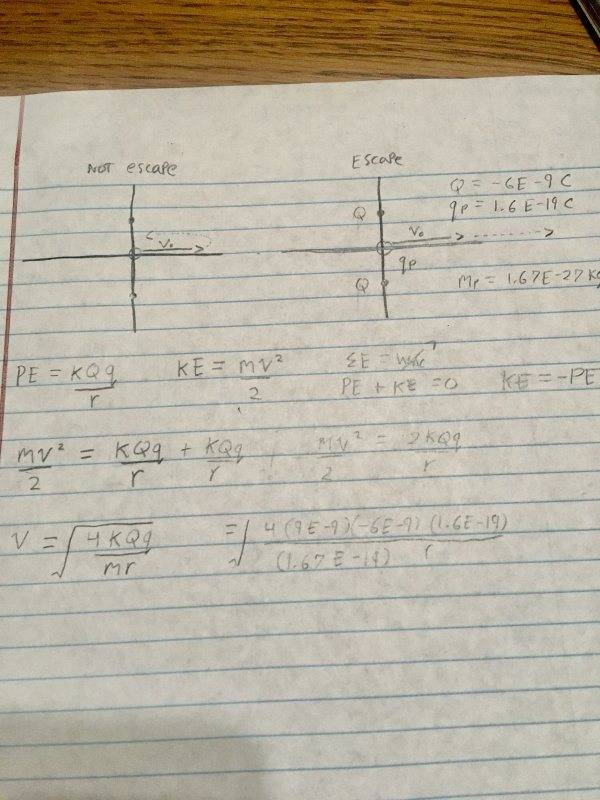 NOT escape
Escape
Q = -6E-9C
qp = 1.6E-19C
Q
Vo
Vo
qp
Q
mp = 1.67E-27 Kg
PE = KQq/r
KE = mv²/2
ΣE =
PE + KE = 0
KE = -PE
mv²/2 = KQq/r + KQq/r ; mv²/2 = 2KQq/r
V = √(4KQq/mr) = √(4(9E-9)(-6E-9)(1.6E-19)/(1.67E-19) r)